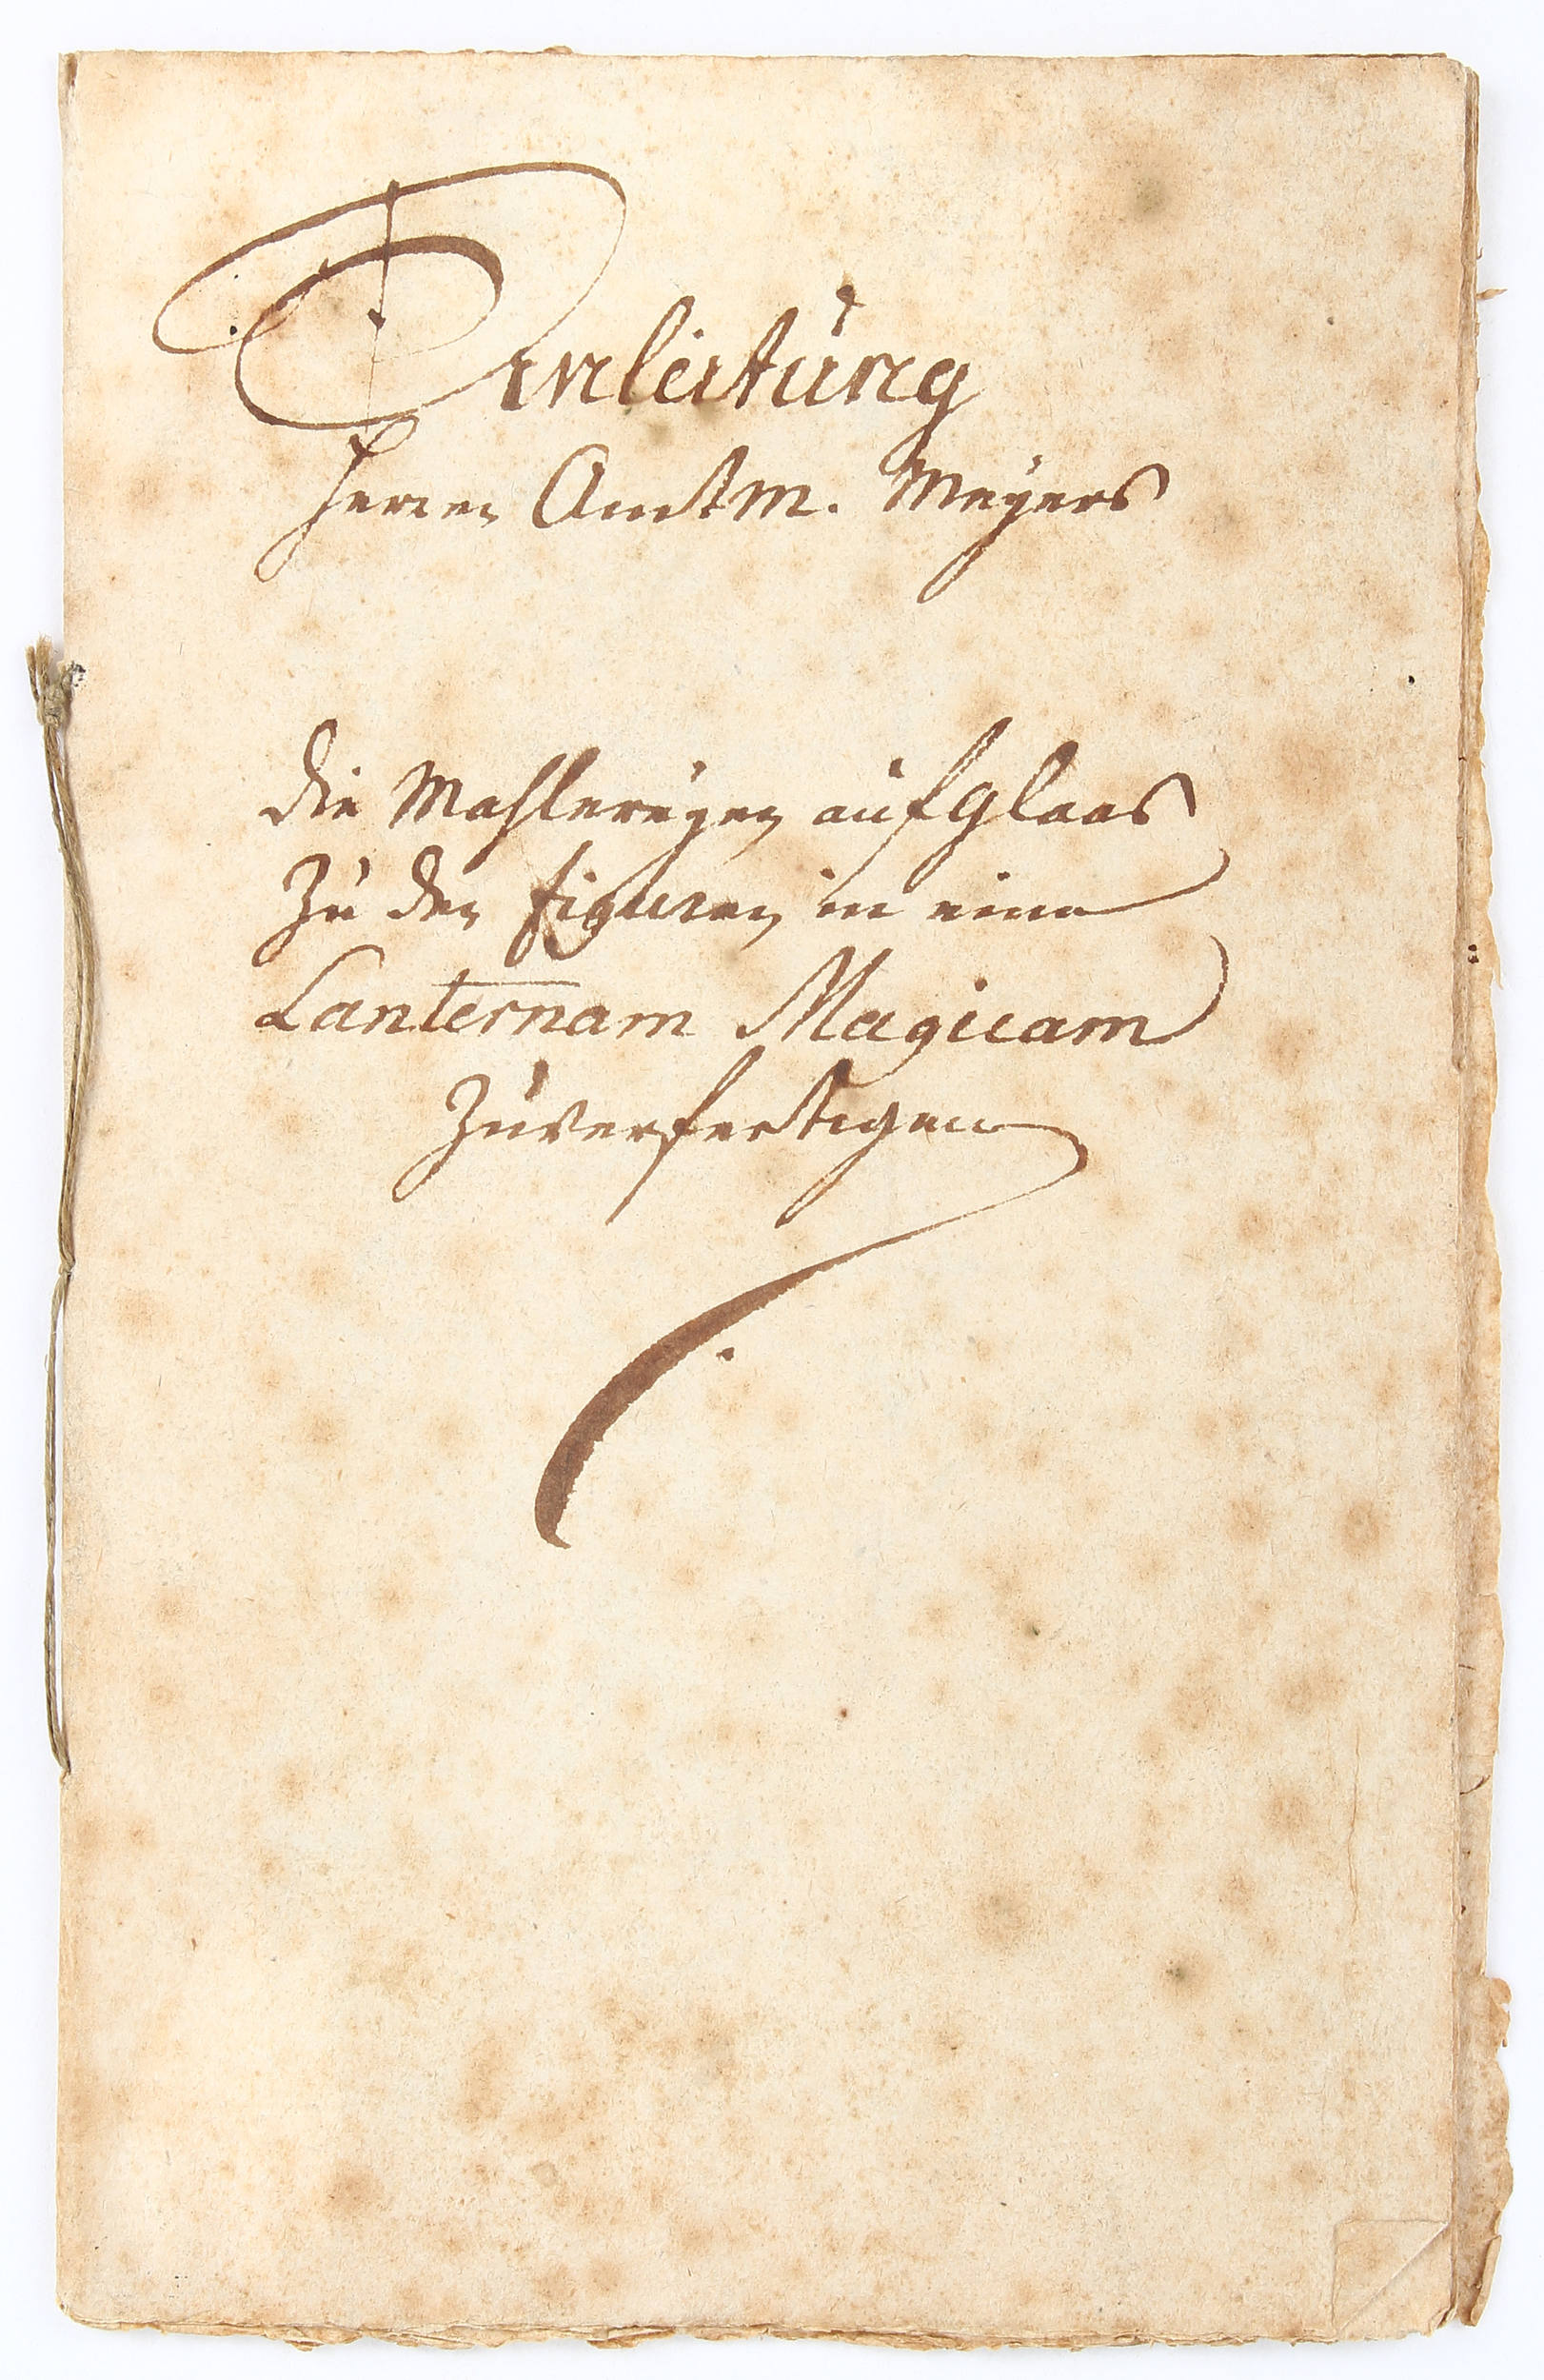 Anleitung
Herren Amtm. Meÿers
die Mahlereÿen auf glaas
Zu den figuren in eine
Lanternam Magicam
Zuverfertigen